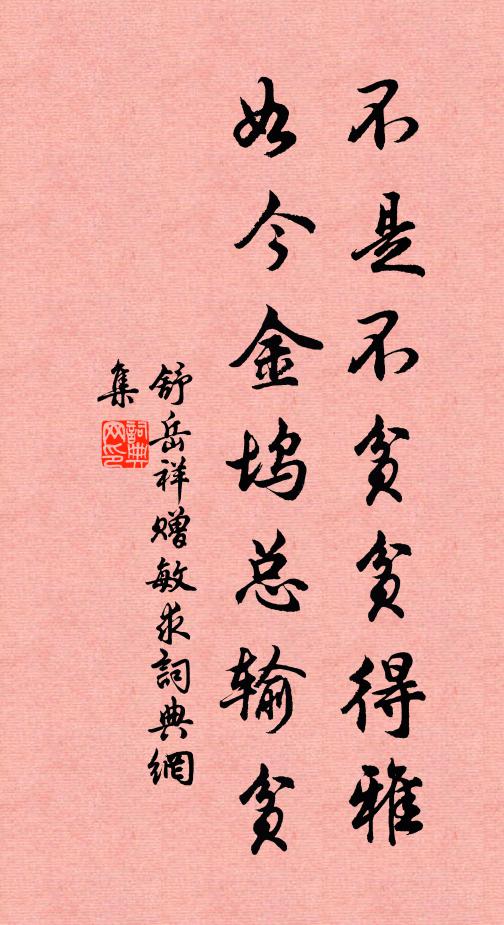 不是不贫贫得雅
如今金坞总输贫
舒岳祥赠敏求詞典網
集
詞典网印